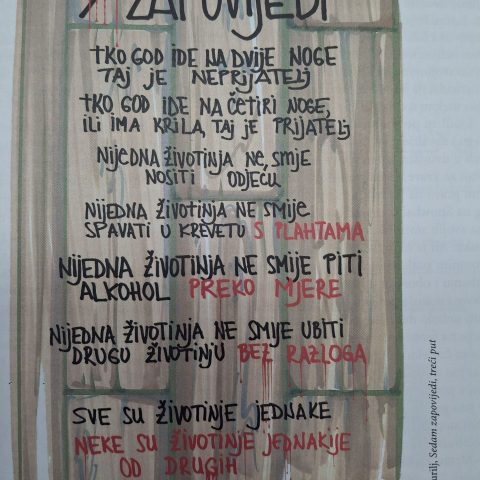 7 ZAPOVIJEDI
TKO GOD IDE NA DVIJE NOGE
TAJ JE NEPRIJATELJ
TKO GOD IDE NA ČETIRI NOGE,
ILI IMA KRILA, TAJ JE PRIJATELJ
NIJEDNA ŽIVOTINJA NE SMIJE
NOSITI ODJEĆU
NIJEDNA ŽIVOTINJA NE SMIJE
SPAVATI U KREVETU S PLAHTAMA
NIJEDNA ŽIVOTINJA NE SMIJE PITI
ALKOHOL PREKO MJERE
NIJEDNA ŽIVOTINJA NE SMIJE UBITI
DRUGU ŽIVOTINJU BEZ RAZLOGA
SVE SU ŽIVOTINJE JEDNAKE
NEKE SU ŽIVOTINJE JEDNAKIJE
OD DRUGIH
Sedam zapovijedi, treći put